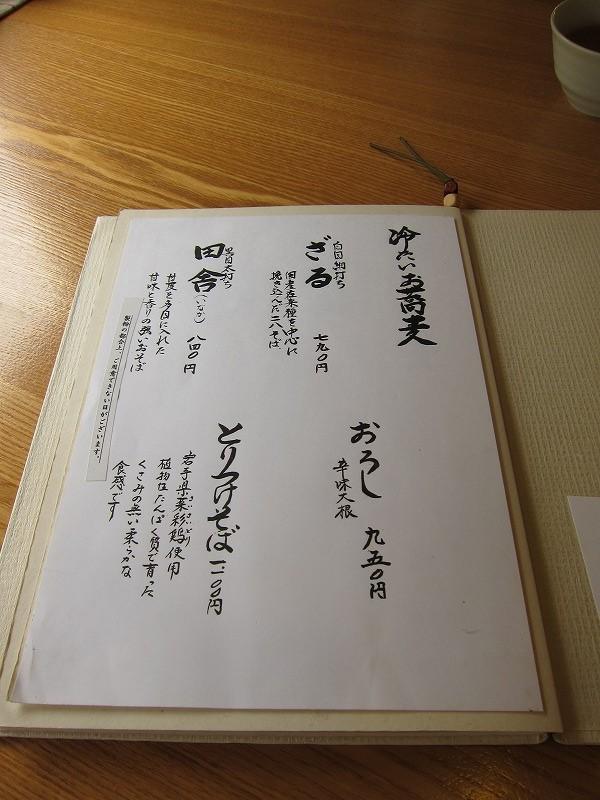 冷たいお蕎麦
白目細打ち
ざる 七九〇円
国産在来種を中心に
挽き込んだ二八そば
黒目太打ち
田舎(いなか) 八四〇円
甘皮を多目に入れた
甘味と香りの強いおそば
製粉の都合上、ご用意できない日がございます。
おろし 九五〇円
辛味大根
とりつけそば 一二〇〇円
岩手県菜彩鶏使用
植物性たんぱく質で育った
くさみの無い柔らかな
食感です